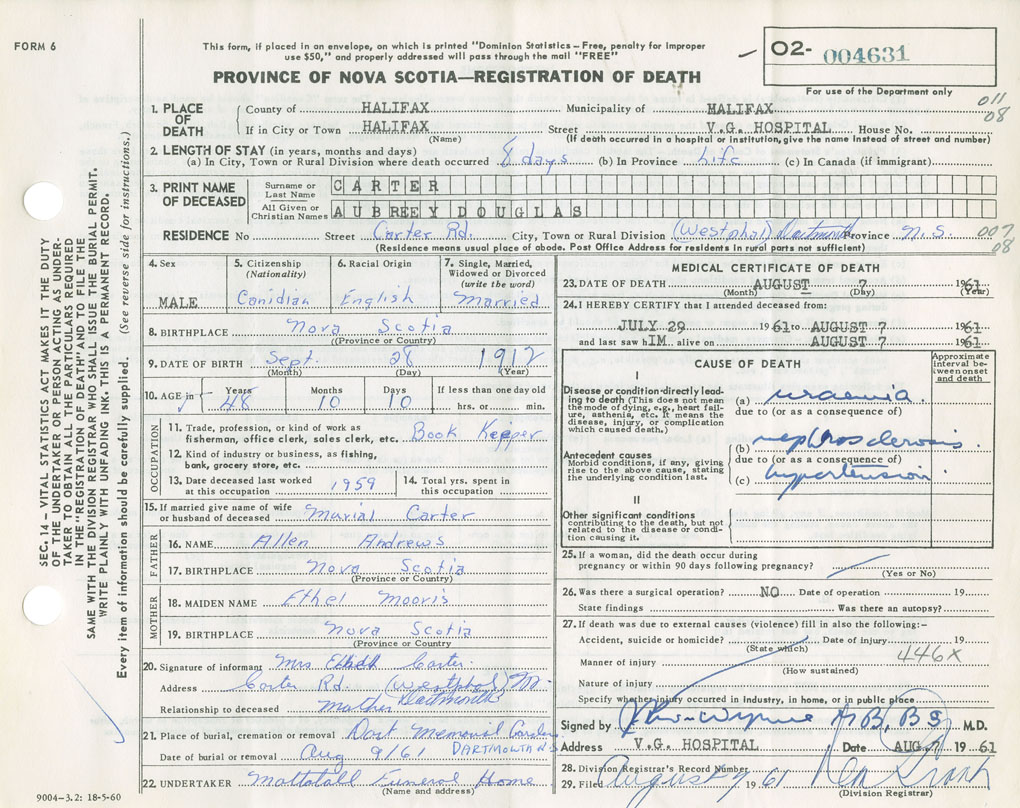 FORM 6
This form, if placed in an envelope, on which is printed "Dominion Statistics – Free, penalty for improper
use $50," and properly addressed will pass through the mail "FREE"
PROVINCE OF NOVA SCOTIA—REGISTRATION OF DEATH
O2- 004631
For use of the Department only
1. PLACE OF DEATH
County of HALIFAX Municipality of HALIFAX 011 08
If in City or Town HALIFAX Street V.G. HOSPITAL House No.
(Name) (If death occurred in a hospital or institution, give the name instead of street and number)
2. LENGTH OF STAY (in years, months and days)
(a) In City, Town or Rural Division where death occurred 8 days (b) In Province Life (c) In Canada (if immigrant)
3. PRINT NAME OF DECEASED
Surname or Last Name CARTER
All Given or Christian Names AUBREEY DOUGLAS
RESIDENCE No Street Carter Rd. City, Town or Rural Division (Westphal) Dartmouth Province N.S. 007 08
(Residence means usual place of abode. Post Office Address for residents in rural parts not sufficient)
4. Sex MALE
5. Citizenship (Nationality) Canidian
6. Racial Origin English
7. Single, Married, Widowed or Divorced (write the word) Married
8. BIRTHPLACE Nova Scotia
((Province or Country)
9. DATE OF BIRTH Sept. 28 1912
(Month) (Day) (Year)
10. AGE in Years 48 Months 10 Days 10 If less than one day old hrs. or min.
OCCUPATION
11. Trade, profession, or kind of work as
fisherman, office clerk, sales clerk, etc. Book Kepper
12. Kind of industry or business, as fishing,
bank, grocery store, etc.
13. Date deceased last worked at this occupation 1959
14. Total yrs. spent in this occupation
15. If married give name of wife
or husband of deceased Murial Carter
FATHER
16. NAME Allen Andrews
17. BIRTHPLACE Nova Scotia
(Province or Country)
MOTHER
18. MAIDEN NAME Ethel Mooris
19. BIRTHPLACE Nova Scotia
(Province or Country)
20. Signature of informant Mrs. Carter.
Address Carter Rd. (Westphal)
Dartmouth
Relationship to deceased Mother
21. Place of burial, cremation or removal Dart Memorial Gardens
DARTMOUTH N.S.
Date of burial or removal Aug 9/61
22. UNDERTAKER Mattatall Funeral Home
(Name and address)
9004-3.2: 18-5-60
MEDICAL CERTIFICATE OF DEATH
23. DATE OF DEATH AUGUST 7 1961
(Month) (Day) (Year)
24. I HEREBY CERTIFY that I attended deceased from:
JULY 29 1961 to AUGUST 7 1961
and last saw hIM alive on AUGUST 7 1961
CAUSE OF DEATH
Approximate interval between onset and death
I
Disease or condition directly leading to death (This does not mean
the mode of dying, e.g., heart failure, asthenia, etc. It means the
disease, injury, or complication
which caused death.)
(a) uraemia
due to (or as a consequence of)
Antecedent causes
Morbid conditions, if any, giving
rise to the above cause, stating
the underlying condition last.
(b) nephrosclerosis
due to (or as a consequence of)
(c) hypertension
II
Other significant conditions
contributing to the death, but not
related to the disease or condition causing it.
25. If a woman, did the death occur during
pregnancy or within 90 days following pregnancy?
(Yes or No)
26. Was there a surgical operation? NO Date of operation 19
State findings Was there an autopsy?
27. If death was due to external causes (violence) fill in also the following:-
Accident, suicide or homicide? Date of injury 19
(State which)
446X
Manner of injury
(How sustained)
Nature of injury
Specify whether injury occurred in industry, in home, or in public place
Signed by M.B., B.S M.D.
Address V.G. HOSPITAL Date AUG. 7 1961
28. Division Registrar's Record Number
29. Filed August 9 1961
(Division Registrar)
SEC. 14 – VITAL STATISTICS ACT MAKES IT THE DUTY
OF THE UNDERTAKER OR PERSON ACTING AS UNDER-
TAKER TO OBTAIN ALL THE PARTICULARS REQUIRED
IN THE "REGISTRATION OF DEATH" AND TO FILE THE
SAME WITH THE DIVISION REGISTRAR WHO SHALL ISSUE THE BURIAL PERMIT.
WRITE PLAINLY WITH UNFADING INK. THIS IS A PERMANENT RECORD.
Every item of information should be carefully supplied. (See reverse side for instructions.)